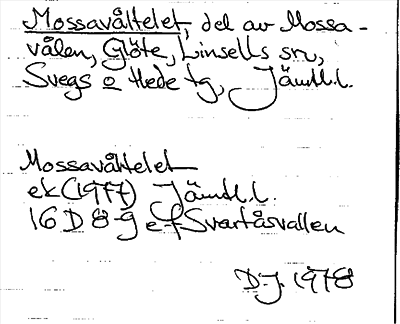 Mossavåltelet, del av Mossa-
vålen, Glöte, Linsells sn,
Svegs o Hede tg, Jämtl.l.
Mossavåltelet
ek (1977) Jämtl.l.
16 D 8-9 ef Svartåsvallen
D-J. 1978